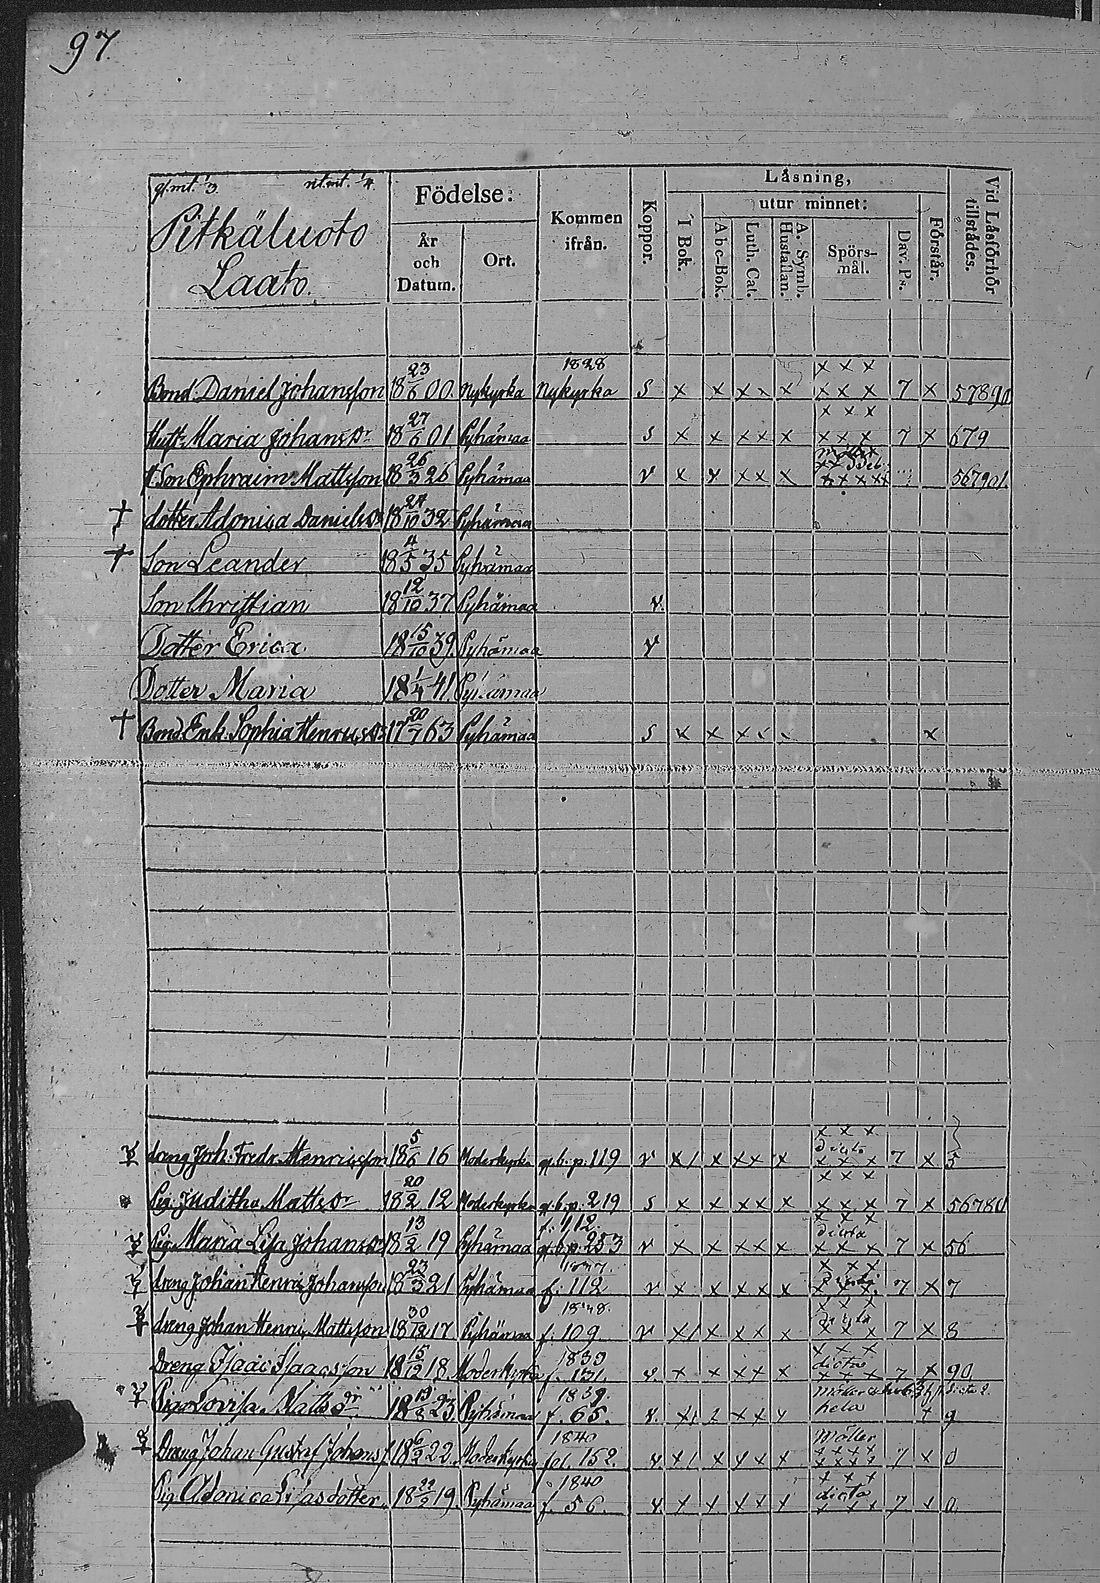 97.
gl. mt. 1/3. nt. mt. 1/4.
Pitkäluoto
Laato.
Födelse:
År och Datum.
Ort.
Kommen ifrån.
Koppor.
Läsning,
I Bok.
utur minnet:
Abc-Bok.
Luth. Cat.
A. Symb. Hustaflan.
Spörs-mål.
Dav. Ps.
Förstår.
Vid Läsförhör tillstädes.
Bond. Daniel Johansson 18 23/6 00. Nykyrka 1828 Nykyrka S x x x x x x x x x x x 7 x 57890
Hust. Maria Johansdr 18 27/6 01 Pyhämaa S x x x x x x x x x x x 7 x 679
Son Ephraim Mattsson 18 26/3 26 Pyhämaa v x x x x x 567901
† dotter Adonica Danielsdr 18 24/10 32 Pyhämaa
† Son Leander 18 4/5 35 Pyhämaa
Son Christian 18 12/10 37 Pyhämaa v.
Dotter Erica 18 15/10 39. Pyhämaa v
Dotter Maria 18 1/4 41 Pyhämaa
† Bond. Enk. Sophia Henricsdr 17 20/7 63 Pyhämaa S x x x x x x
dreng Joh. Fredr. Henricsson 18 5/6 16 Moderkyrka gl. b. p. 119 v x / x x x x x x x dicto x x x 7 x 5
Pig. Juditha Mattsdr 18 20/2 12 Moderkyrka gl. b. p. 219 S x x x x x x x x x x x 7 x 56780
Pig. Maria Lisa Johansdr 18 13/2 19 Pyhämaa f. 112. gl. b. p. 253 v x x x x x x x x dicta x x x 7 x 56
dreng Johan Henric Johansson 18 23/3 21 Pyhämaa f. 112 v x x x x x x x x 7 x 7
dreng Johan Henric Mattsson 18 30/12 17 Pyhämaa 1838. f. 109 v x / x x x x x x x 7 x 8
Dreng Isaac Isaacsson 18 15/12 18. Moderkyrka 1839 f. 131. v x x x x x x x x dicta x x x 7 x 90
Pig. Lovisa Mattsdr 23 Pyhämaa 1839. f. 65. v hela x 9
Dreng Johan Gustaf Johanss. 18 6/2 22. Moderkyrka 1840 fol. 152. v x / x x x x Möller x x x x x x x x 7 x 0
Pig. Adonica 19. Pyhämaa 1840 f. 56 v x x x x x x x x dicta x x x 7 x 0